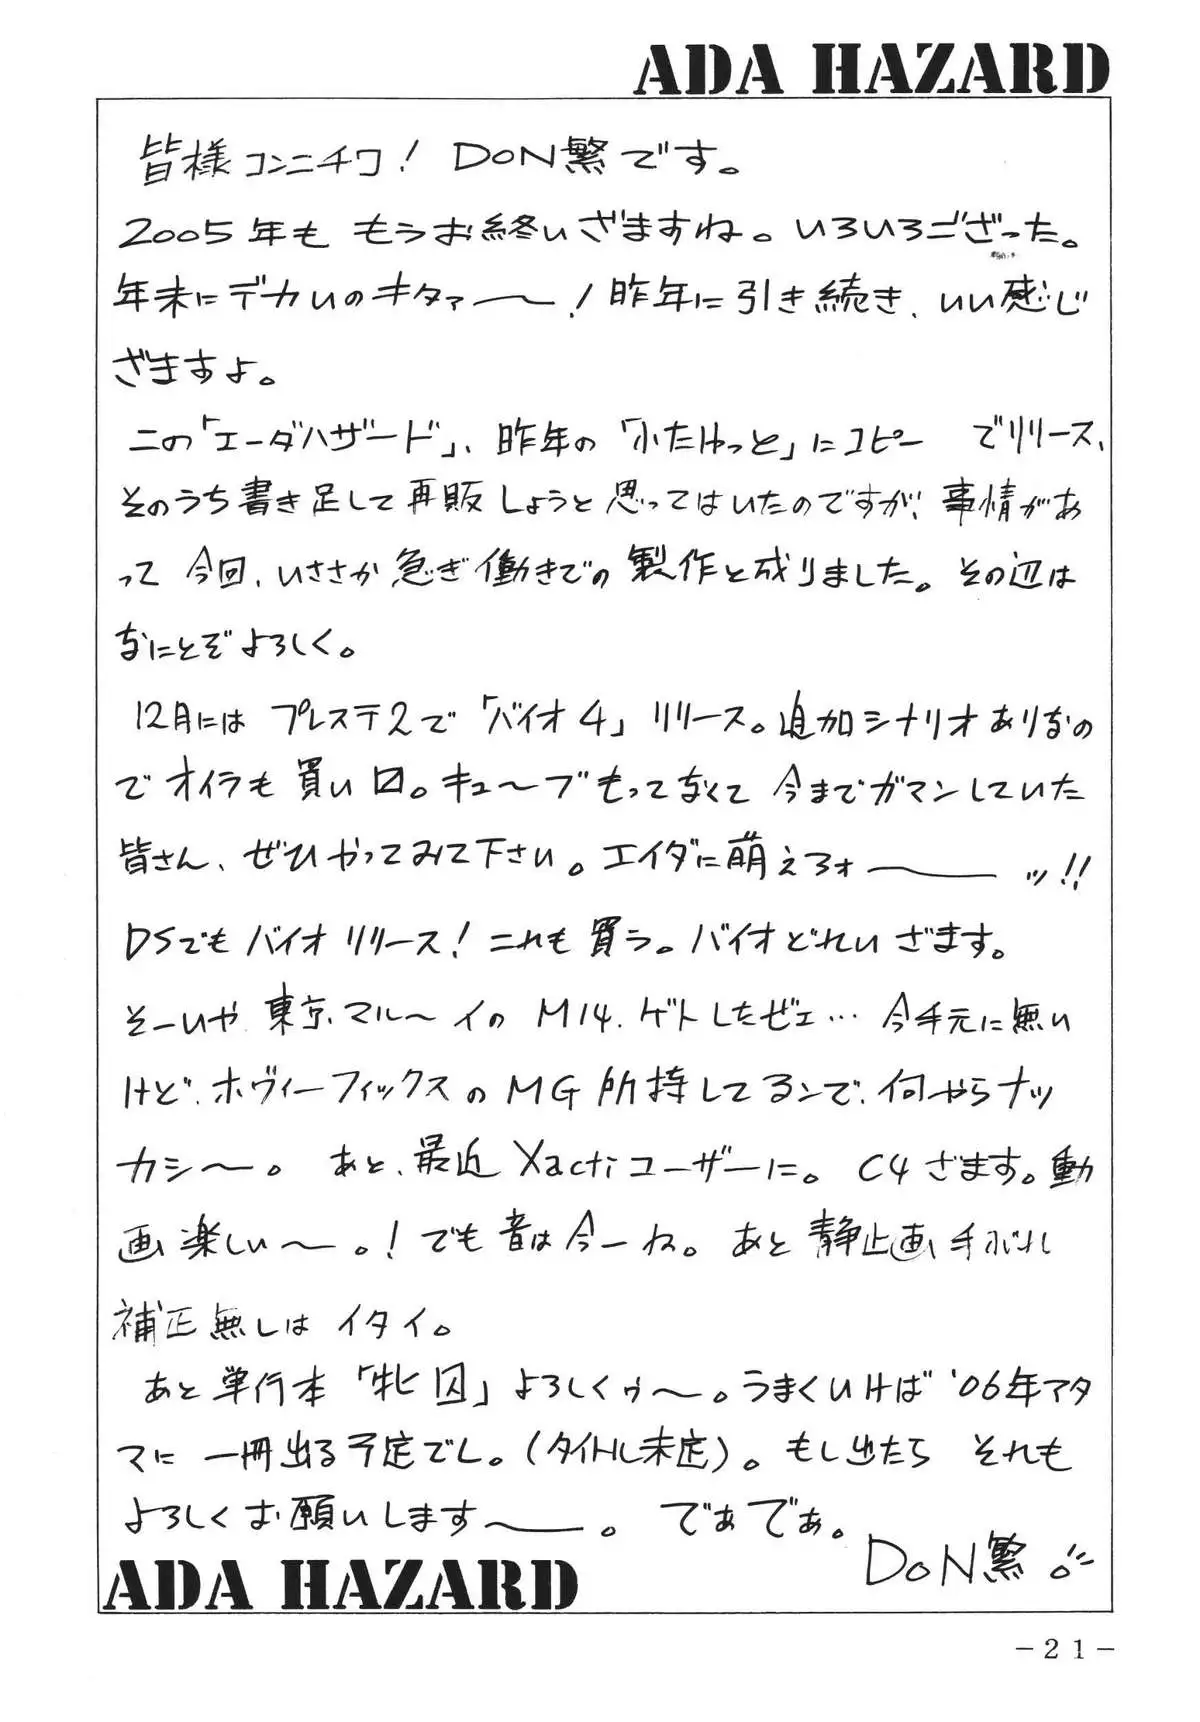 ADA HAZARD
皆様コンニチワ! DON繁です。
2005年も もうお終いざますね。いろいろござった。
年末にデカいのキタァー〜!昨年に引き続き、いい感じ
ざますよ。
この「エーダハザード」、昨年の「ふたけっと」にコピー でリリース、
そのうち書き足して再販しようと思ってはいたのですが、事情があ
って 今回、いささか急ぎ働きでの製作と成りました。その辺は
なにとぞよろしく。
12月には プレステ2で「バイオ4」リリース。追加シナリオありなの
でオイラも買い口。キュ〜ブもってなくて 今までガマンしていた
皆さん、ぜひやってみて下さい。エイダに萌えろォ〜ッ!!
DSでもバイオリリース!これも買う。バイオどれいざます。
そーいや、東京マル〜イの M14、ゲトしたぜェ… 今手元に無い
けど、ホヴィーフィックスのMG所持してるンで、何やらナッ
カシ〜。 あと、最近 Xactiユーザーに。 C4ざます。動
画楽しい〜。!でも音は今一ね。 あと静止画手ぶれ
補正無しは イタイ。
あと単行本「牝囚」よろしくゥ〜。うまくいけば '06年アタ
マに 一冊出る予定でし。(タイトル未定)。 もし出たら それも
よろしくお願いします〜。 でぁでぁ。
DON繁
ADA HAZARD
－21－